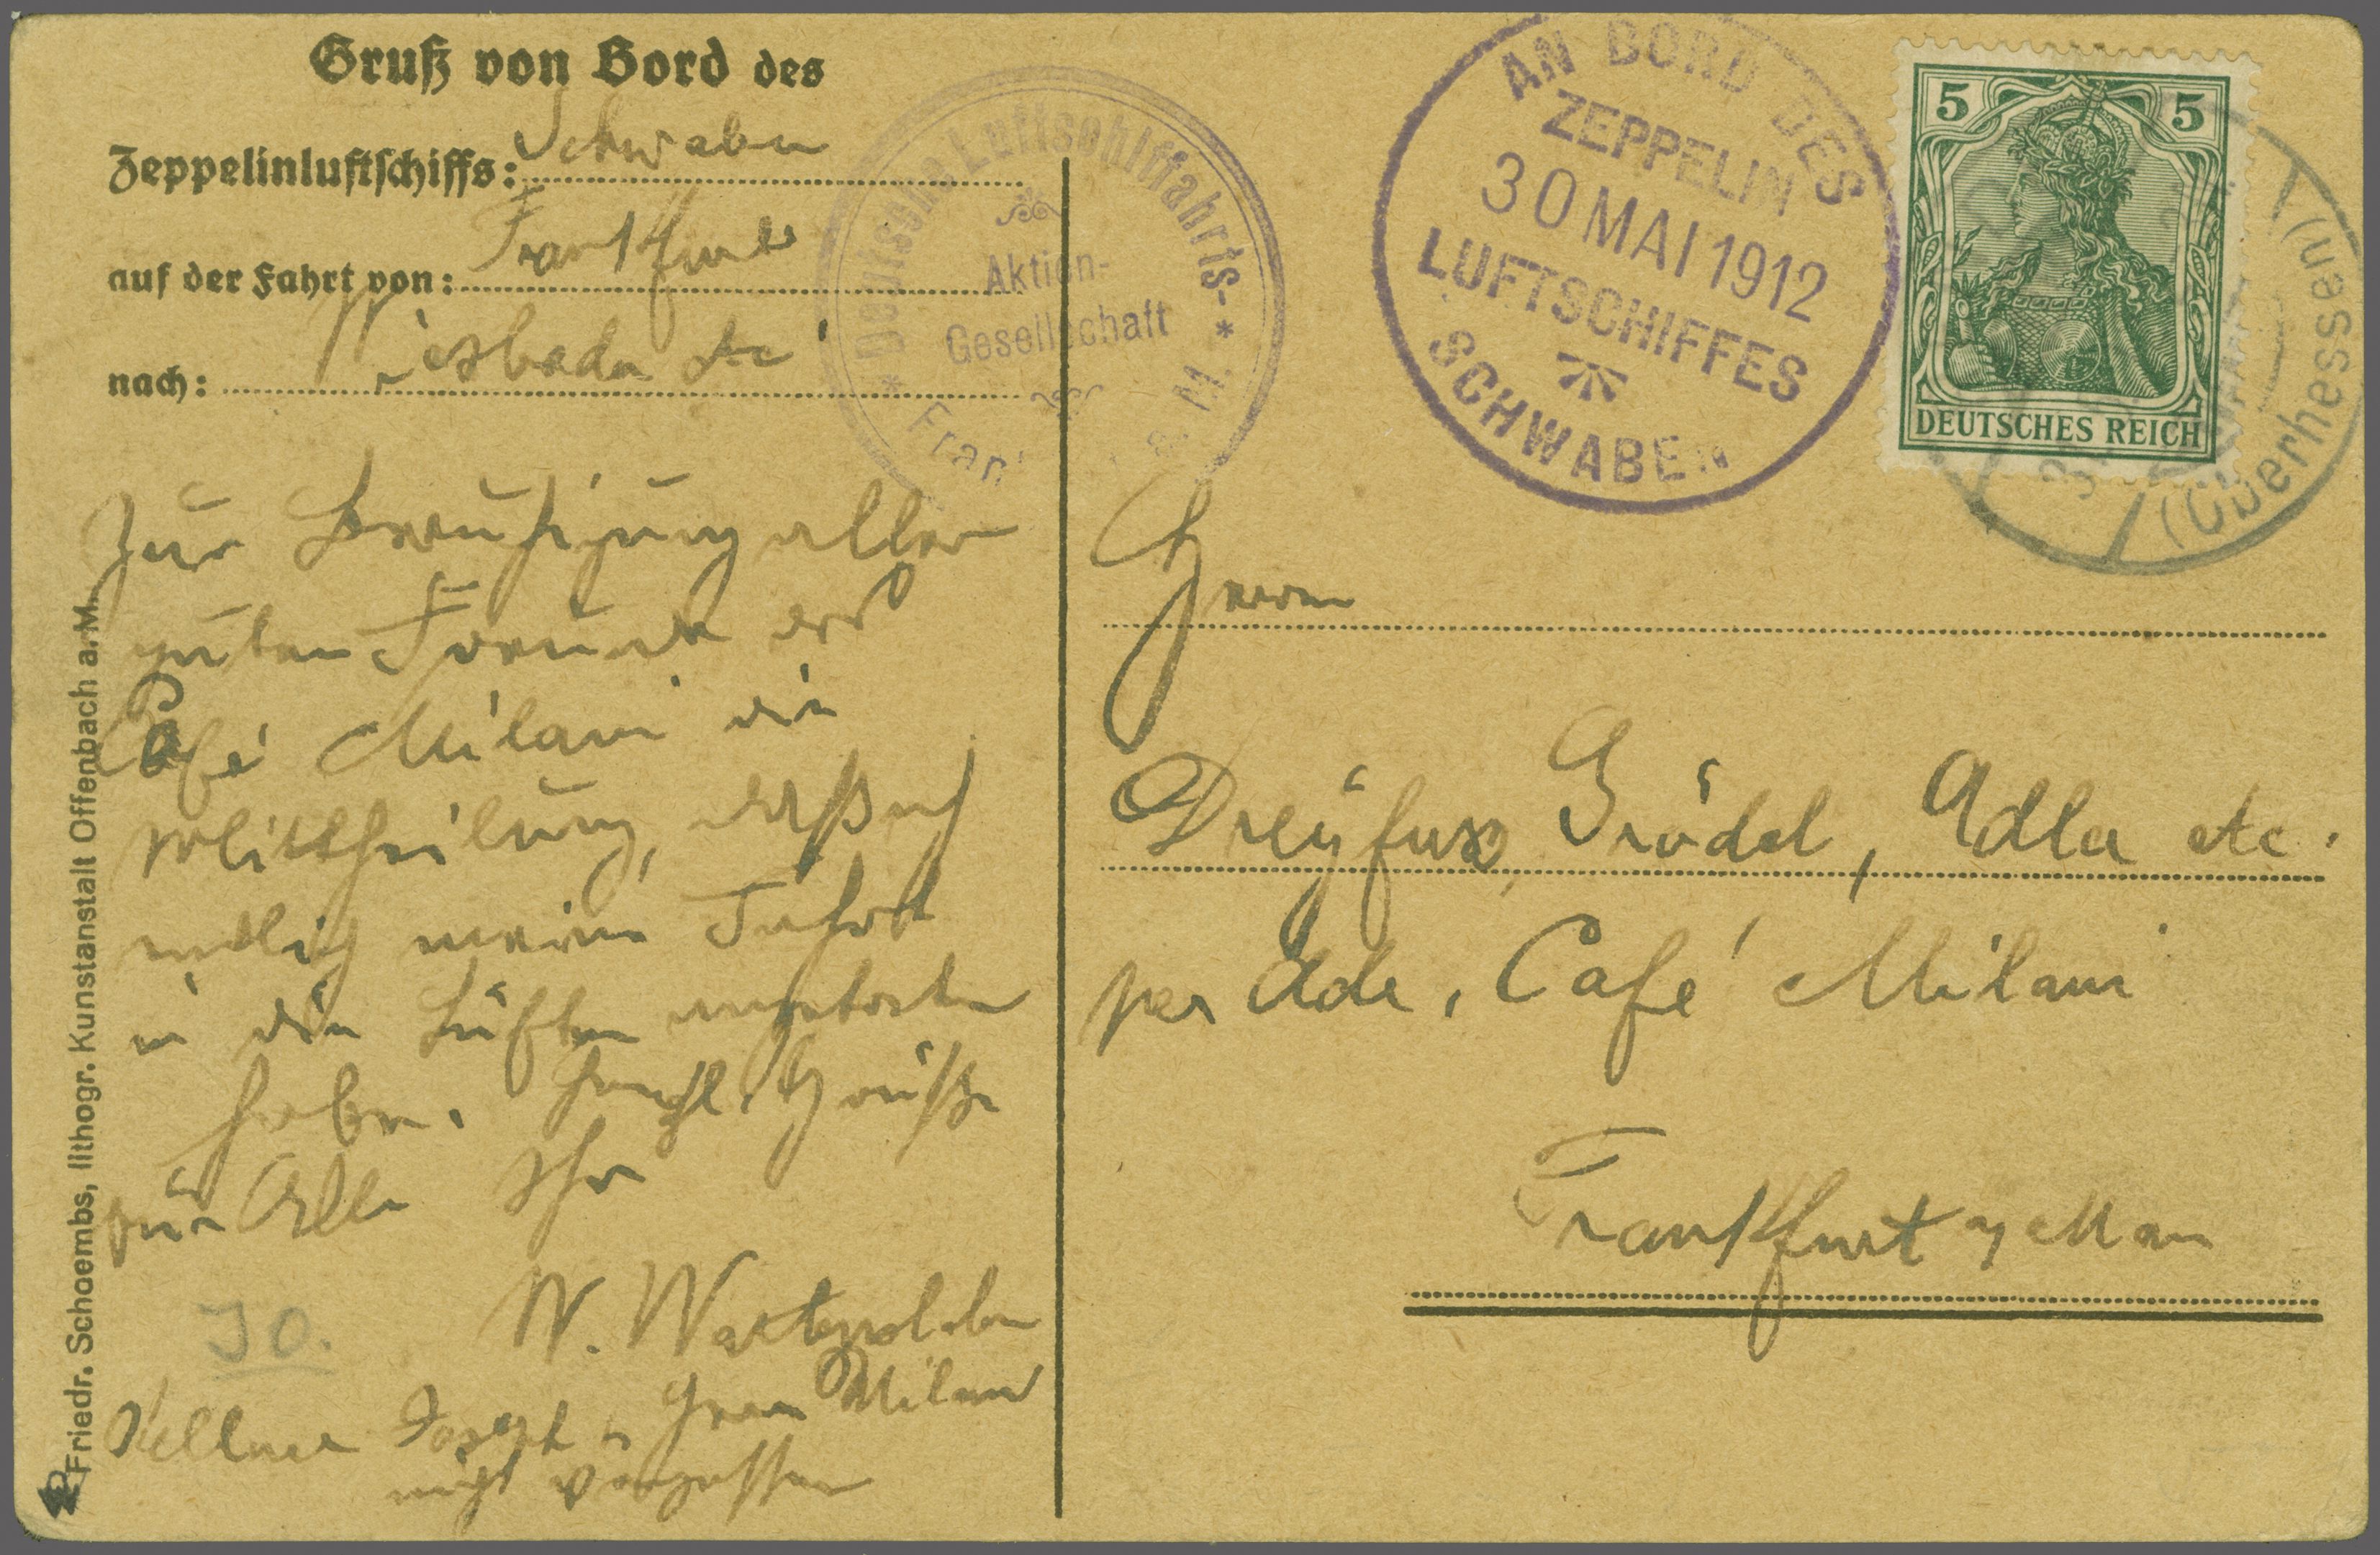 Gruß von Bord des
Zeppelinluftschiffs: Schwaben
auf der Fahrt von: Frankfurt
nach: Wiesbaden etc
Deutsche Luftschiffahrts-
Aktien-
Gesellschaft
a. M.
AN BORD DES
ZEPPELIN
30 MAI 1912
LUFTSCHIFFES
SCHWABEN
5 5
DEUTSCHES REICH
(Oberhessen)
Zur Beruhigung aller
guten Freunde des
Café Milani die
Mittheilung, daß ich
endlich meine Fahrt
in die Lüfte angetreten
habe. Herzl. Grüße
für Alle Ihr
N.
Kellner Joseph u. Frau Milani
nicht vergessen
JO.
Herrn
Dreÿfuss, Grödel, Adler etc.
per Ade, Café Milani
Frankfurt a/Main
Friedr. Schoembs, lithogr. Kunstanstalt Offenbach a.M.